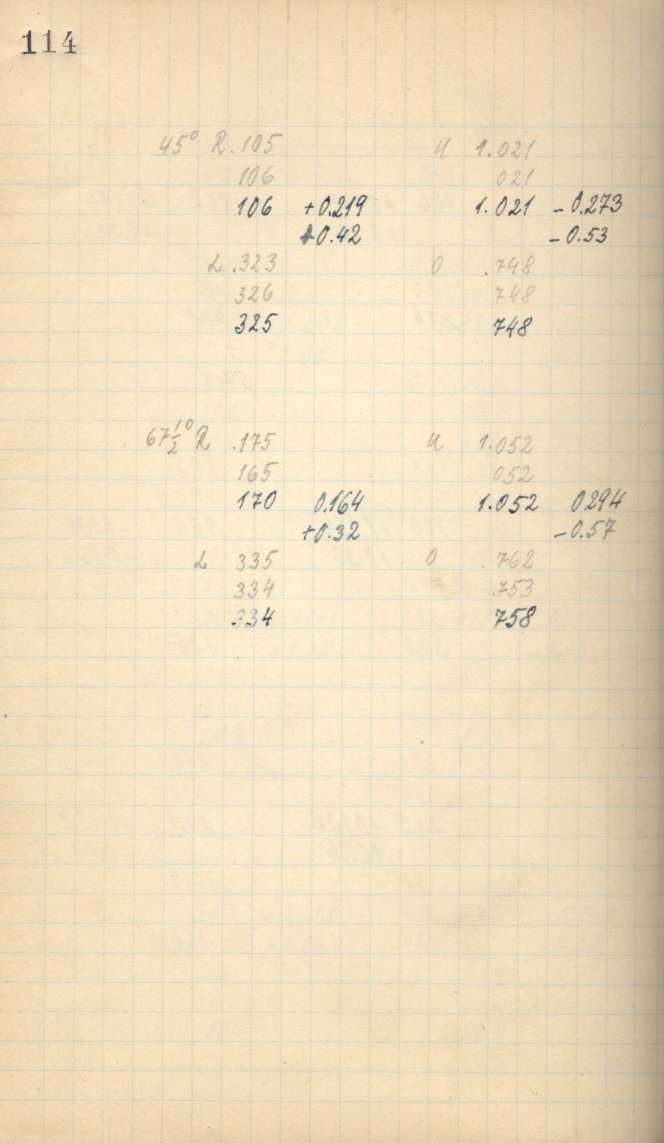 114
45° R .105 U 1.021
106 021
106 +0.219 1.021 -0.273
+0.42 -0.53
L .323 O .748
326 748
325 748
67½° R .175 U 1.052
165 052
170 0.164 1.052 0.294
+0.32 -0.57
L 335 O .762
334 .753
.334 758